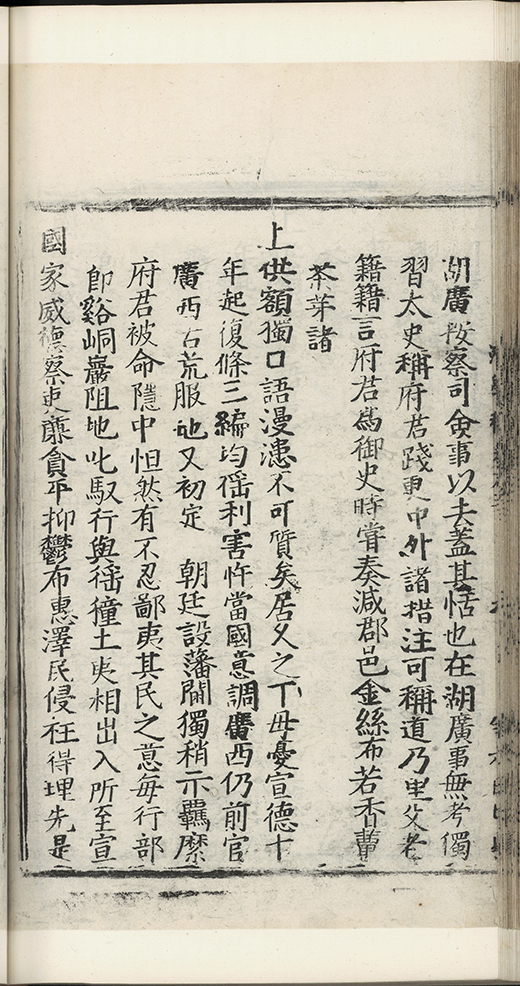 湖廣按察司僉事以去蓋其恬也在湖廣事無考獨
習太史稱府君踐更中外諸措注可稱道乃里父老
籍籍言府君爲御史時嘗奏減郡邑金絲布若香蕈
茶芽諸
上供額獨口語漫漶不可質矣居久之丁母憂宣德十
年起復條三編均徭利害忤當國意調廣西仍前官
廣西古荒服也又初定 朝廷設藩閫獨稍示羈縻
府君被命隱中怛然有不忍鄙夷其民之意每行部
卽谿峒巖阻地叱馭行與徭獞土吏相出入所至宣
國家威德察吏廉貪平抑鬱布惠澤民侵枉得理先是